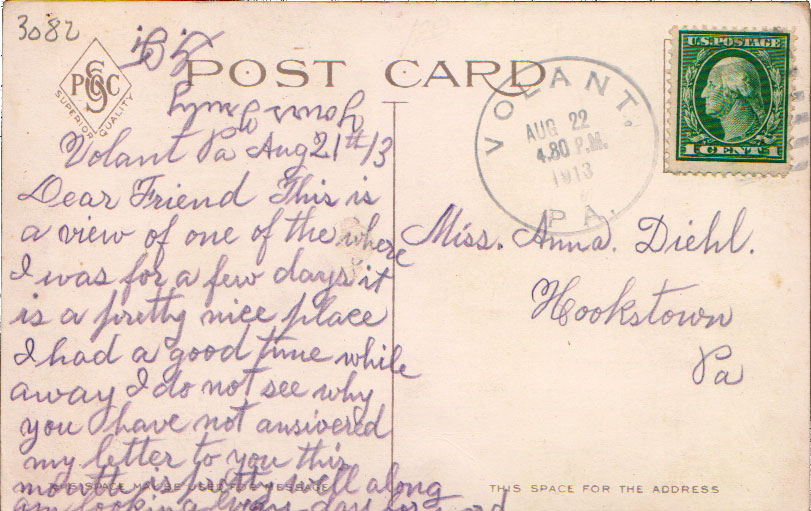 3082
POST CARD
S
P C C
SUPERIOR QUALITY
U.S. POSTAGE
1 CENT 1
VOLANT.
AUG 22
4.30 P.M.
1913
PA.
Yours truly
Volant Pa Aug 21st 13
Dear Friend This is
a view of one of the where
I was for a few days it
is a pretty nice place
I had a good time while
away I do not see why
you have not ansivered
my letter to you this
month is pretty well along
am looking every day for word
Miss. Anna. Diehl.
Hookstown
Pa
THIS SPACE MAY BE USED FOR MESSAGE
THIS SPACE FOR THE ADDRESS